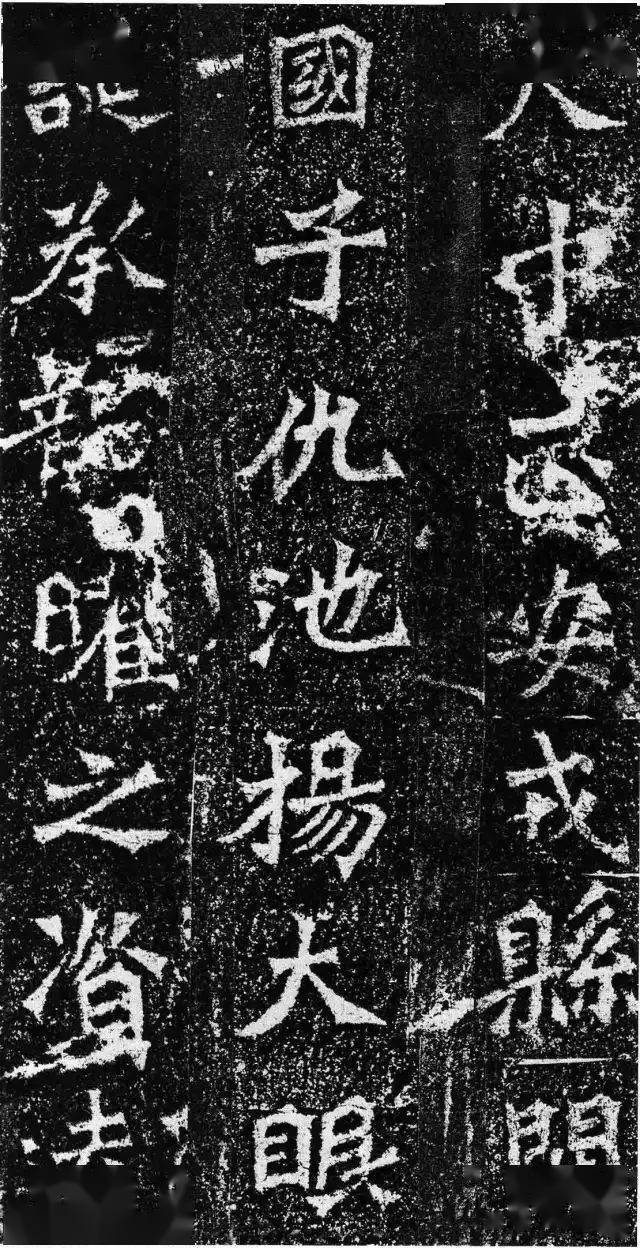 中安戎縣開
國子仇池揚大眼
誕承龍曜之資